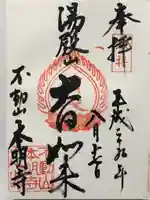 奉拝
平成二十九年
八月十三日
湯殿山
大日如来
不動山本明寺